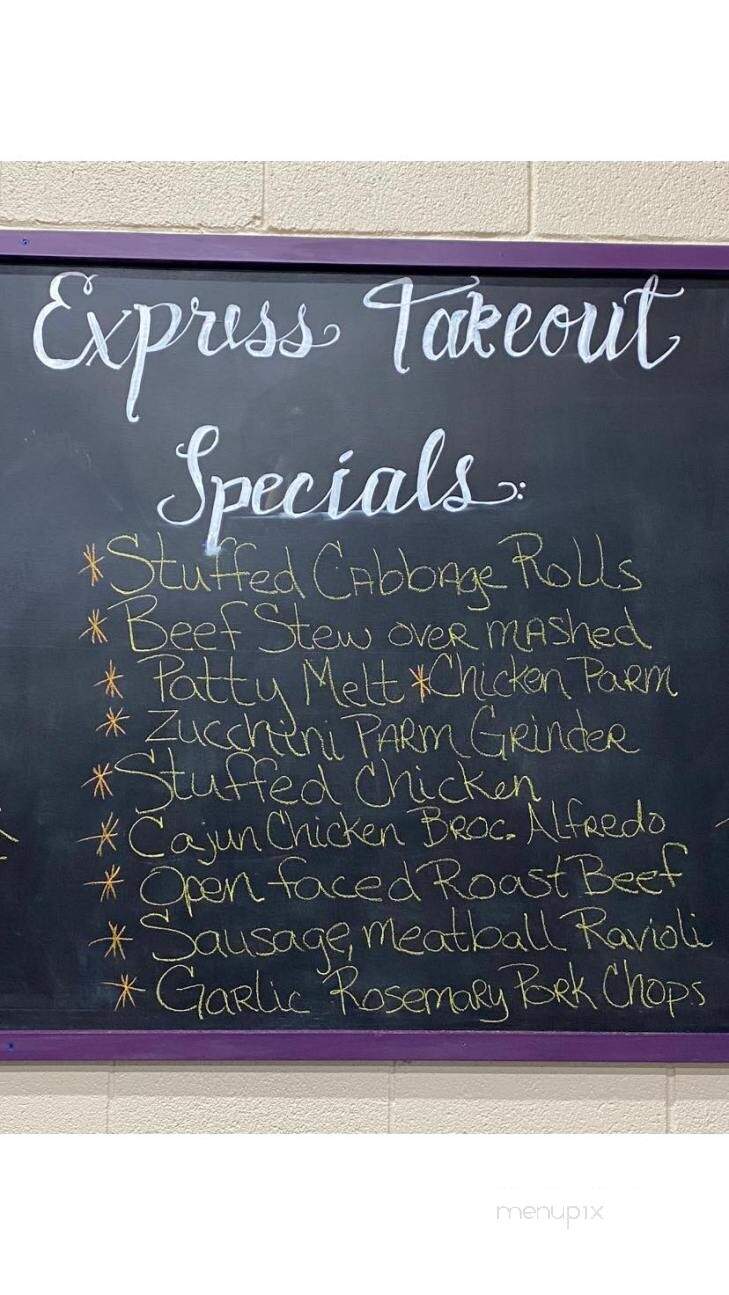 Express Takeout
Specials:
*Stuffed Cabbage Rolls
*Beef Stew over mashed
* Patty Melt *Chicken Parm
* Zucchini Parm Grinder
*Stuffed Chicken
* Cajun Chicken Broc. Alfredo
* Open faced Roast Beef
* Sausage, meatball Ravioli
* Garlic Rosemary Pork Chops
menupix